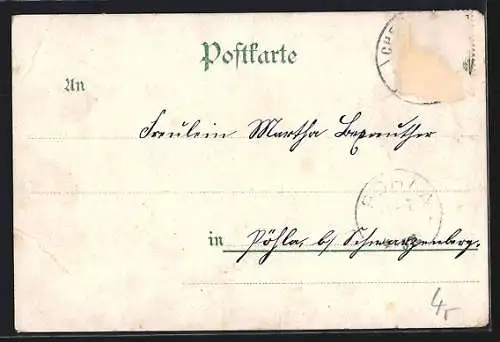 Postkarte
An
Freulein Martha
in Pöhla, b/ Schwarzenberg.
CHE
PÖHLA
4,-